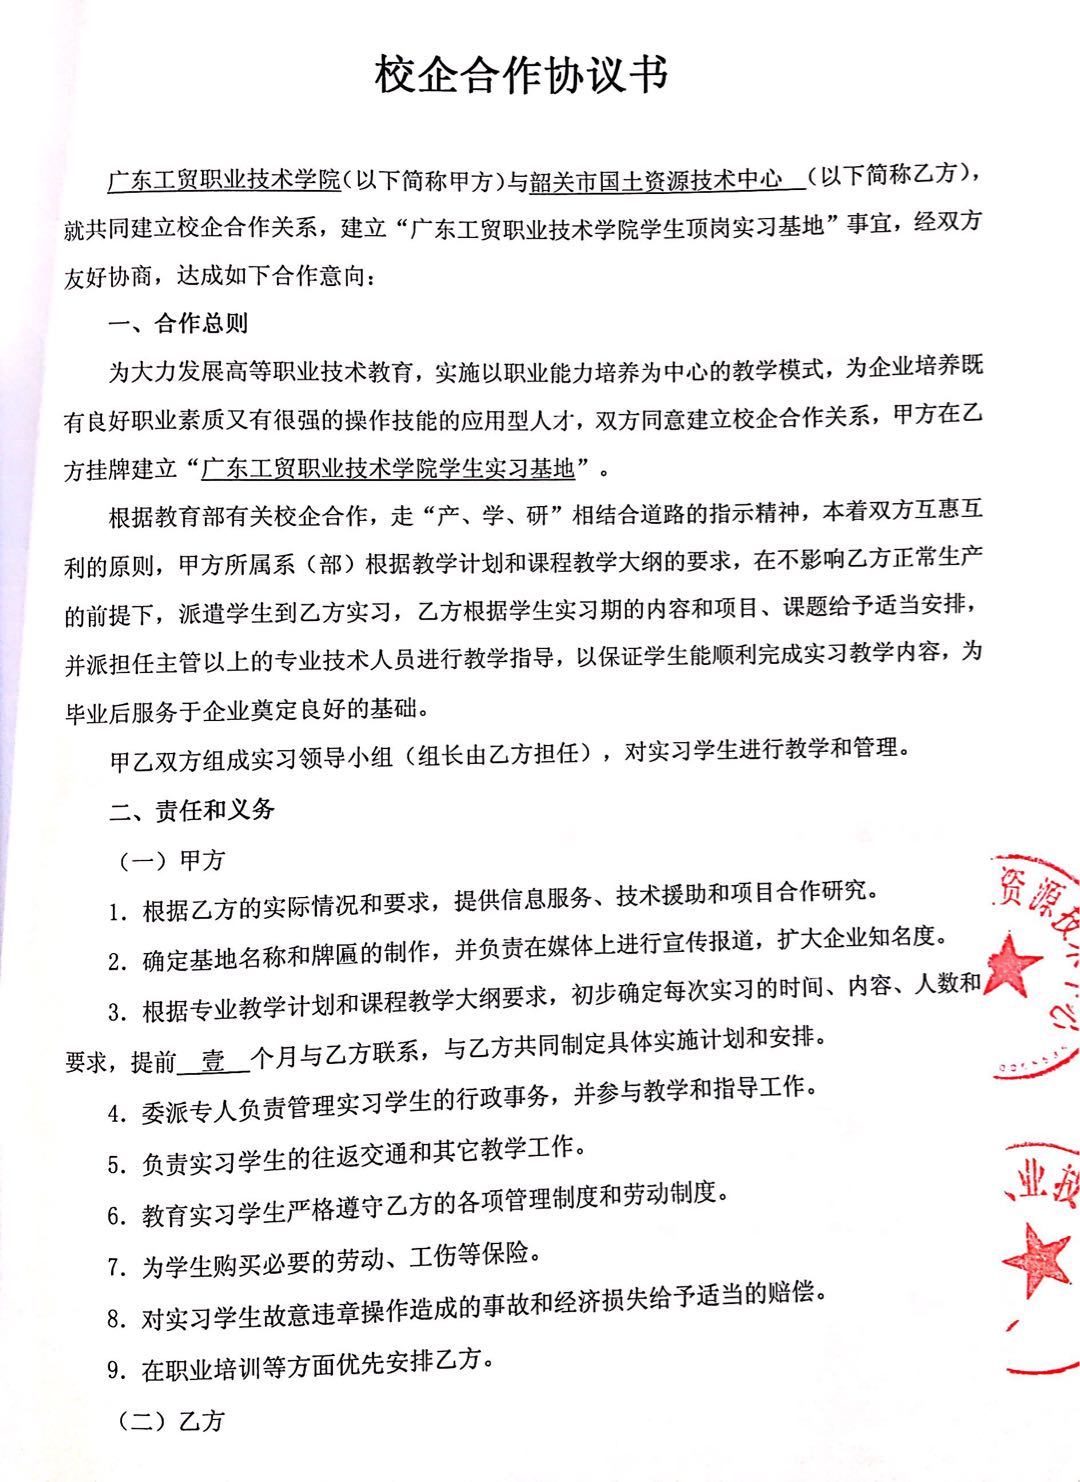 校企合作协议书
广东工贸职业技术学院(以下简称甲方)与韶关市国土资源技术中心 (以下简称乙方)，
就共同建立校企合作关系，建立“广东工贸职业技术学院学生顶岗实习基地”事宜，经双方
友好协商，达成如下合作意向：
一、合作总则
为大力发展高等职业技术教育，实施以职业能力培养为中心的教学模式，为企业培养既
有良好职业素质又有很强的操作技能的应用型人才，双方同意建立校企合作关系，甲方在乙
方挂牌建立“广东工贸职业技术学院学生实习基地”。
根据教育部有关校企合作，走“产、学、研”相结合道路的指示精神，本着双方互惠互
利的原则，甲方所属系（部）根据教学计划和课程教学大纲的要求，在不影响乙方正常生产
的前提下，派遣学生到乙方实习，乙方根据学生实习期的内容和项目、课题给予适当安排，
并派担任主管以上的专业技术人员进行教学指导，以保证学生能顺利完成实习教学内容，为
毕业后服务于企业奠定良好的基础。
甲乙双方组成实习领导小组（组长由乙方担任），对实习学生进行教学和管理。
二、责任和义务
（一）甲方
1．根据乙方的实际情况和要求，提供信息服务、技术援助和项目合作研究。
2．确定基地名称和牌匾的制作，并负责在媒体上进行宣传报道，扩大企业知名度。
3．根据专业教学计划和课程教学大纲要求，初步确定每次实习的时间、内容、人数和
要求，提前 壹 个月与乙方联系，与乙方共同制定具体实施计划和安排。
4．委派专人负责管理实习学生的行政事务，并参与教学和指导工作。
5．负责实习学生的往返交通和其它教学工作。
6．教育实习学生严格遵守乙方的各项管理制度和劳动制度。
7．为学生购买必要的劳动、工伤等保险。
8．对实习学生故意违章操作造成的事故和经济损失给予适当的赔偿。
9．在职业培训等方面优先安排乙方。
（二）乙方
资源技
业技